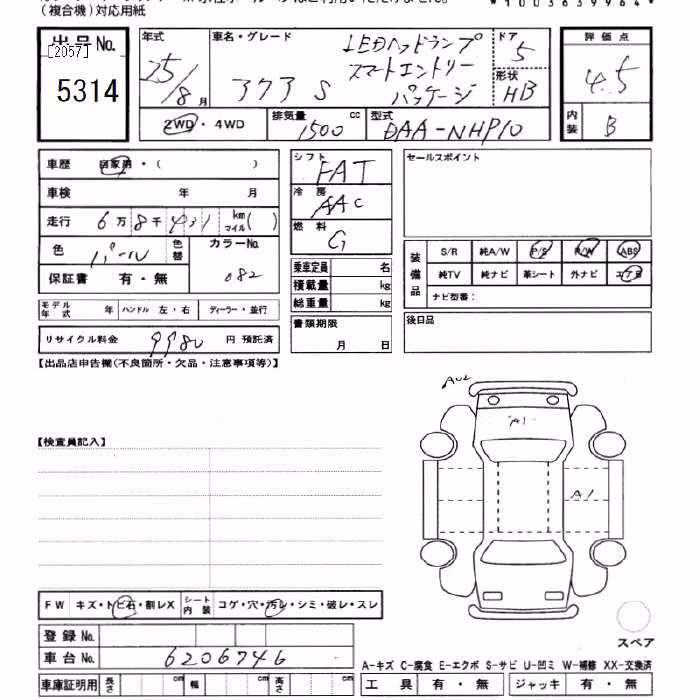 (複合機)対応用紙
*1003639964*
出品No.
[2057]
5314
年式
25/8月
車名・グレード
LEDヘッドランプ
スマートエントリー
パッケージ
ドア
5
形状
HB
評価点
4.5
内装
B
2WD・4WD
排気量
1500
cc
型式
DAA-NHP10
車歴
自家用・(　　)
シフト
FAT
セールスポイント
車検　年　月
冷房
AAC
走行
6万8千431
km
マイル( )
燃料
G
色
パール
色替
カラーNo.
082
保証書　有・無
乗車定員　名
積載量　kg
総重量　kg
装備品
S/R 純A/W P/S P/W ABS
純TV 純ナビ 革シート 外ナビ エアB
ナビ型番:
モデル年式　年
ハンドル 左・右
ディーラー・並行
書類期限
月　日
後日品
リサイクル料金
9980
円 預託済
【出品店申告欄(不良箇所・欠品・注意事項等)】
AU2
A1
【検査員記入】
A1
FW
キズ・トビ石・割レX
シート内装
コゲ・穴・汚レ・シミ・破レ・スレ
登録No.
スペア
車台No.
6206746
A-キズ C-腐食 E-エクボ S-サビ U-凹ミ W-補修 XX-交換済
車庫証明用
長さ　cm
幅　cm
高さ　cm
工具　有・無
ジャッキ　有・無